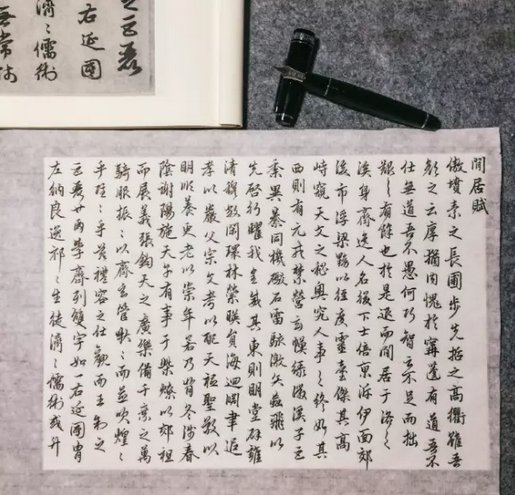 閒居賦
傲墳素之長圃步先哲之高衢雖吾
顏之云厚猶內愧於甯蘧有道吾不
仕無道吾不愚何巧智之不足而拙
艱之有餘也於是退而閒居于洛之
涘身齊逸人名綴下士倍京泝伊面郊
後市浮梁黝以徑度靈臺傑其高
峙窺天文之秘奧究人事之終始其
西則有元戎禁營玄幙綠徽溪子巨
黍異絭同機礮石雷駭激矢蝱飛以
先啓行曜我皇威其東則明堂辟雍
清穆敞閑環林縈映圓海迴淵聿追
孝以嚴父宗文考以配天祗聖敬以
明順養更老以崇年若乃背冬涉春
陰謝陽施天子有事于柴燎以郊祖
而展義張鈞天之廣樂備千乘之萬
騎服振々以齊玄管啾々而並吹煌々
乎隱々乎茲禮容之壯觀而王制之
巨麗也兩學齊列雙宇如一右延國胄
左納良逸祁々生徒濟々儒術或升
之巨麗
右延國
濟々儒術
無常師